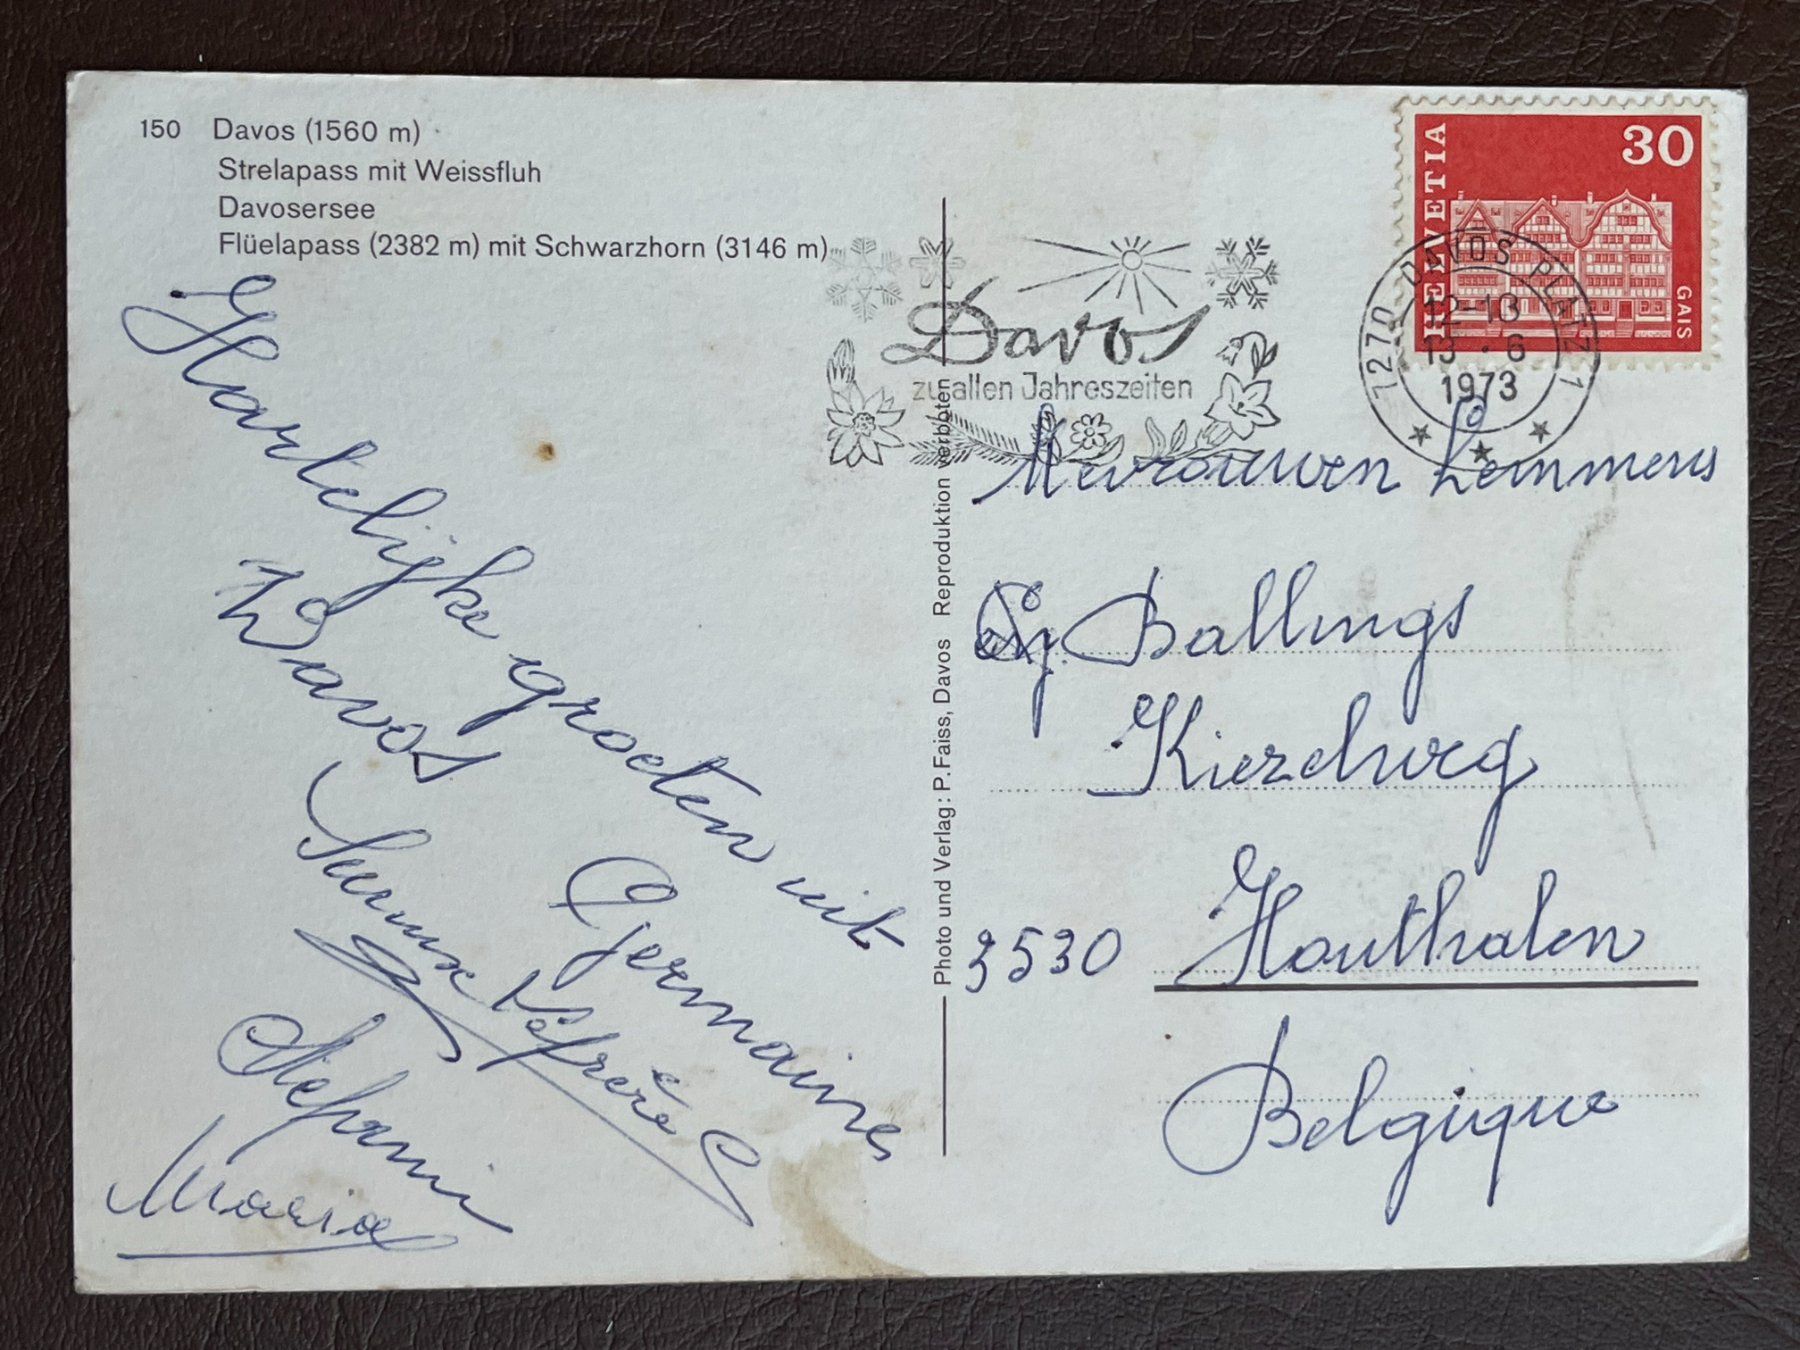 150 Davos (1560 m)
Strelapass mit Weissfluh
Davosersee
Flüelapass (2382 m) mit Schwarzhorn (3146 m)
Hartelijke groeten uit
Davos
Germaine
Stefani
Maria
Photo und Verlag: P. Faiss, Davos Reproduktion verboten
Davos
zu allen Jahreszeiten
HELVETIA
30
GAIS
7270 DAVOS PLATZ 1
12-13
13.6
1973
Mevrouwen Lemmens
Ballings
Houthalen
3530
Belgique